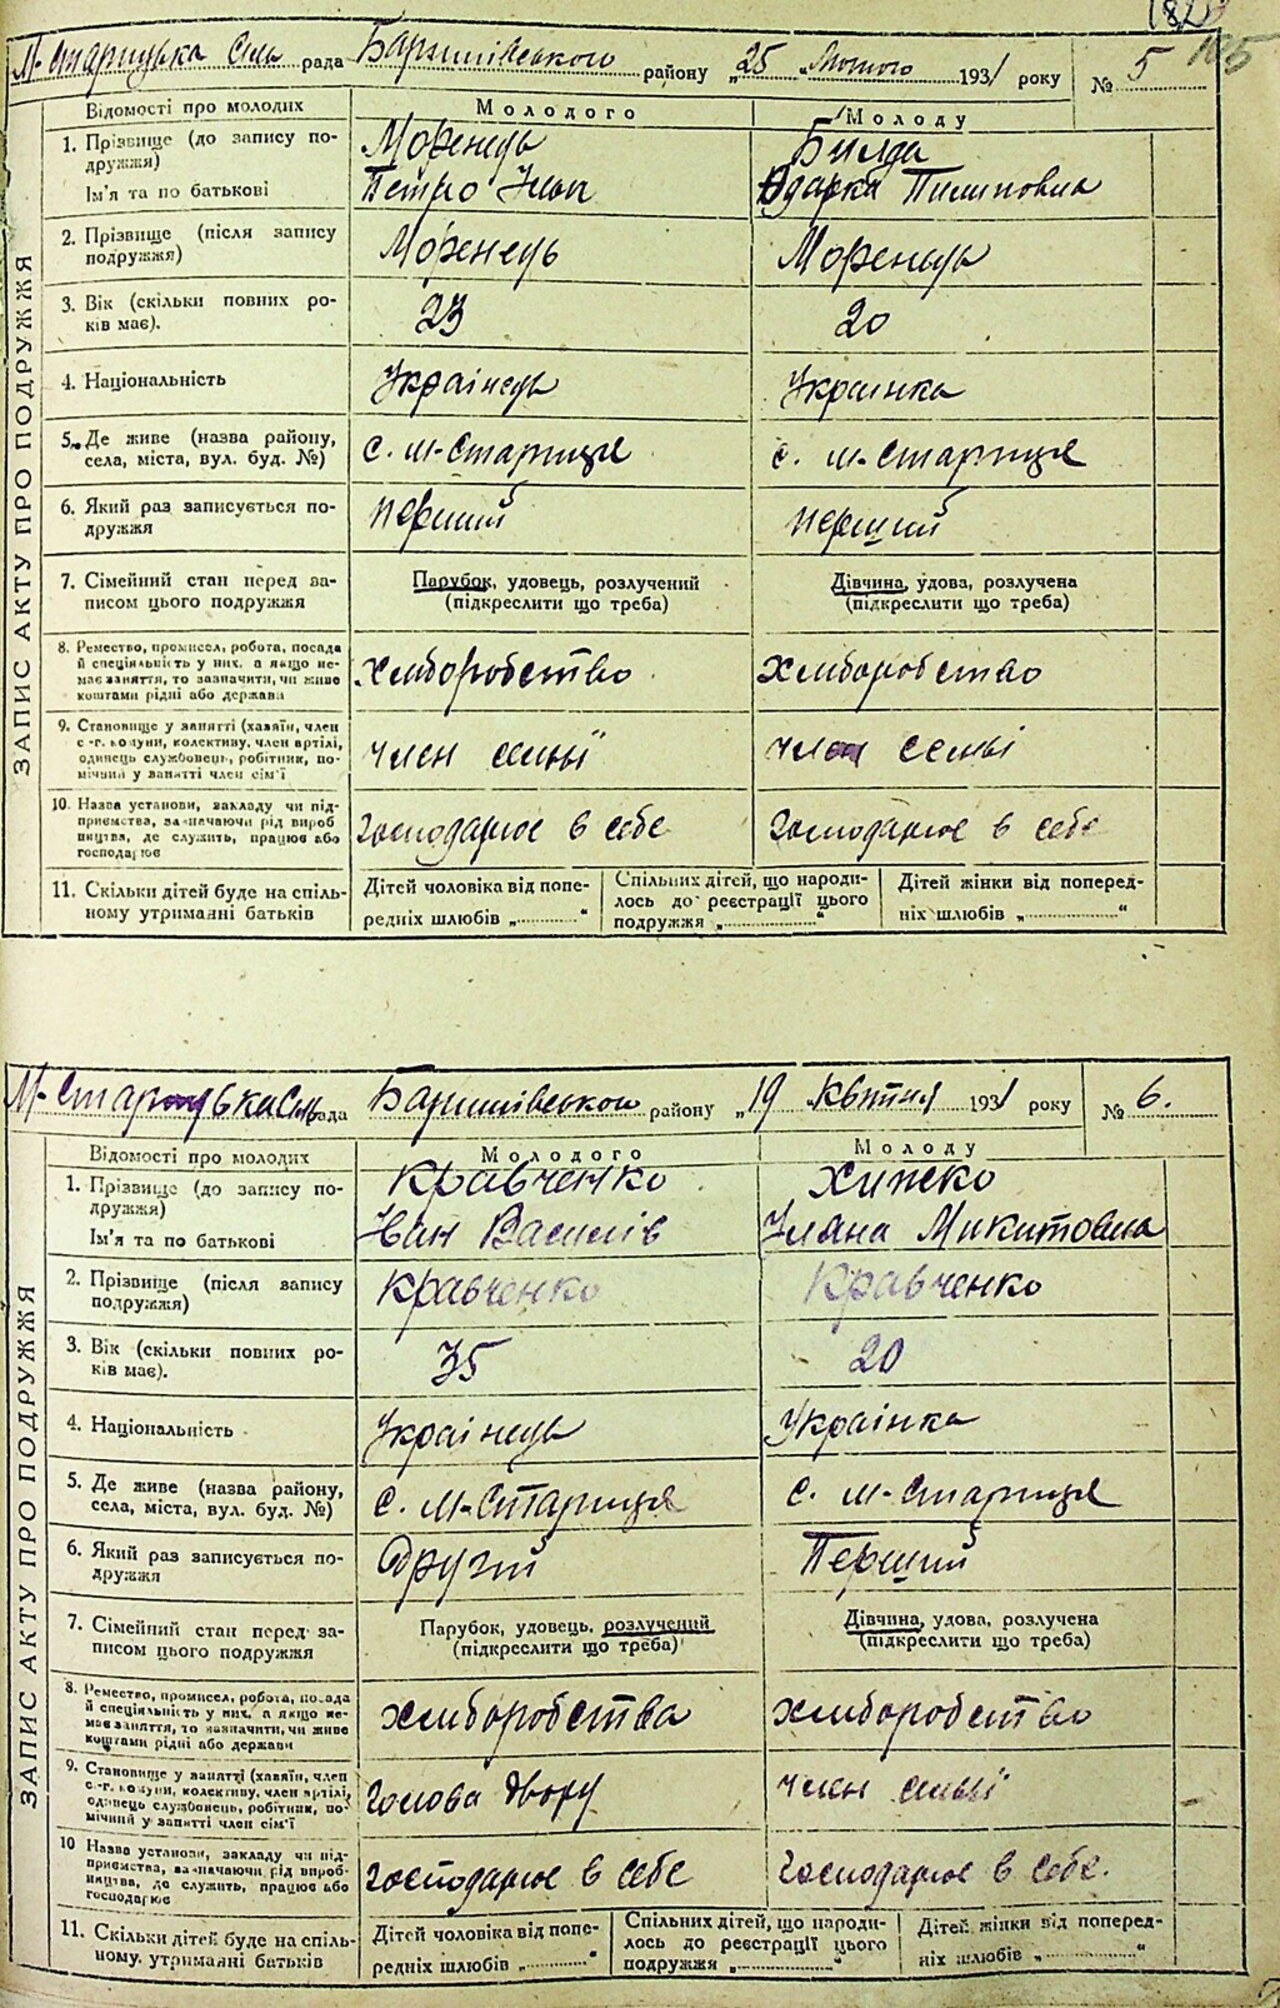 185
М-Старицька Сіль рада Баришівського району „25 „Лютого 1931 року № 5
ЗАПИС АКТУ ПРО ПОДРУЖЖЯ
Відомості про молодих
Молодого
Молоду
1. Прізвище (до запису по-
дружжя)
Моренець
Ім'я та по батькові
Петро
Одарка Пилиповна
2. Прізвище (після запису
подружжя)
Моренець
Моренець
3. Вік (скільки повних ро-
ків має).
23
20
4. Національність
Українець
Украінка
5. Де живе (назва району,
села, міста, вул. буд. №)
с. М-Стариця
с. М-Стариця
6. Який раз записується по-
дружжя
перший
перший
7. Сімейний стан перед за-
писом цього подружжя
Парубок, удовець, розлучений
(підкреслити що треба)
Дівчина, удова, розлучена
(підкреслити що треба)
8. Ремество, промисел, робота, посада
й спеціяльність у них, а якщо не-
має заняття, то зазначити, чи живе
коштами рідні або держави
хліборобство
хліборобство
9. Становище у занятті (хазяїн, член
с.-г. комуни, колективу, член артілі,
одинець службовець, робітник, по-
мічний у занятті член сім'ї
член семьї
член семьі
10. Назва установи, закладу чи під-
приємства, зазначаючи рід вироб
ництва, де служить, працює або
господарює
господарює в себе
господарює в себе
11. Скільки дітей буде на спіль-
ному утриманні батьків
Дітей чоловіка від попе-
редніх шлюбів „..........“
Спільних дітей, що народи-
лось до реєстрації цього
подружжя „..........“
Дітей жінки від поперед-
ніх шлюбів „..........“
М-Старицька Сіль рада Баришівського району „19 „Квітня 1931 року № 6.
ЗАПИС АКТУ ПРО ПОДРУЖЖЯ
Відомості про молодих
Молодого
Молоду
1. Прізвище (до запису по-
дружжя)
Кравченко
Хижко
Ім'я та по батькові
Іван Василів
Уляна Микитовна
2. Прізвище (після запису
подружжя)
Кравченко
Кравченко
3. Вік (скільки повних ро-
ків має).
35
20
4. Національність
Украінець
Украінка
5. Де живе (назва району,
села, міста, вул. буд. №)
с. М-Стариця
с. М-Стариця
6. Який раз записується по-
дружжя
Другій
Перший
7. Сімейний стан перед за-
писом цього подружжя
Парубок, удовець, розлучений
(підкреслити що треба)
Дівчина, удова, розлучена
(підкреслити що треба)
8. Ремество, промисел, робота, посада
й спеціяльність у них, а якщо не-
має заняття, то зазначити, чи живе
коштами рідні або держави
хліборобства
хліборобство
9. Становище у занятті (хазяїн, член
с.-г. комуни, колективу, член артілі,
одинець службовець, робітник, по-
мічний у занятті член сім'ї
голова двору
член семьї
10 Назва установи, закладу чи під-
приємства, зазначаючи рід вироб-
ництва, де служить, працює або
господарює
господарює в себе
господарює в себе.
11. Скільки дітей буде на спіль-
ному утриманні батьків
Дітей чоловіка від попе-
редніх шлюбів „..........“
Спільних дітей, що народи-
лось до реєстрації цього
подружжя „..........“
Дітей жінки від поперед-
ніх шлюбів „..........“